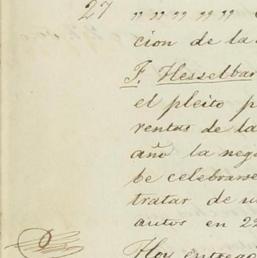 27 " " " " "
cion de la
F. Hesselbar
el pleito p
rentas de la
año la neg
be celebrarse
tratar de u
autos en 22
Hoy entregó